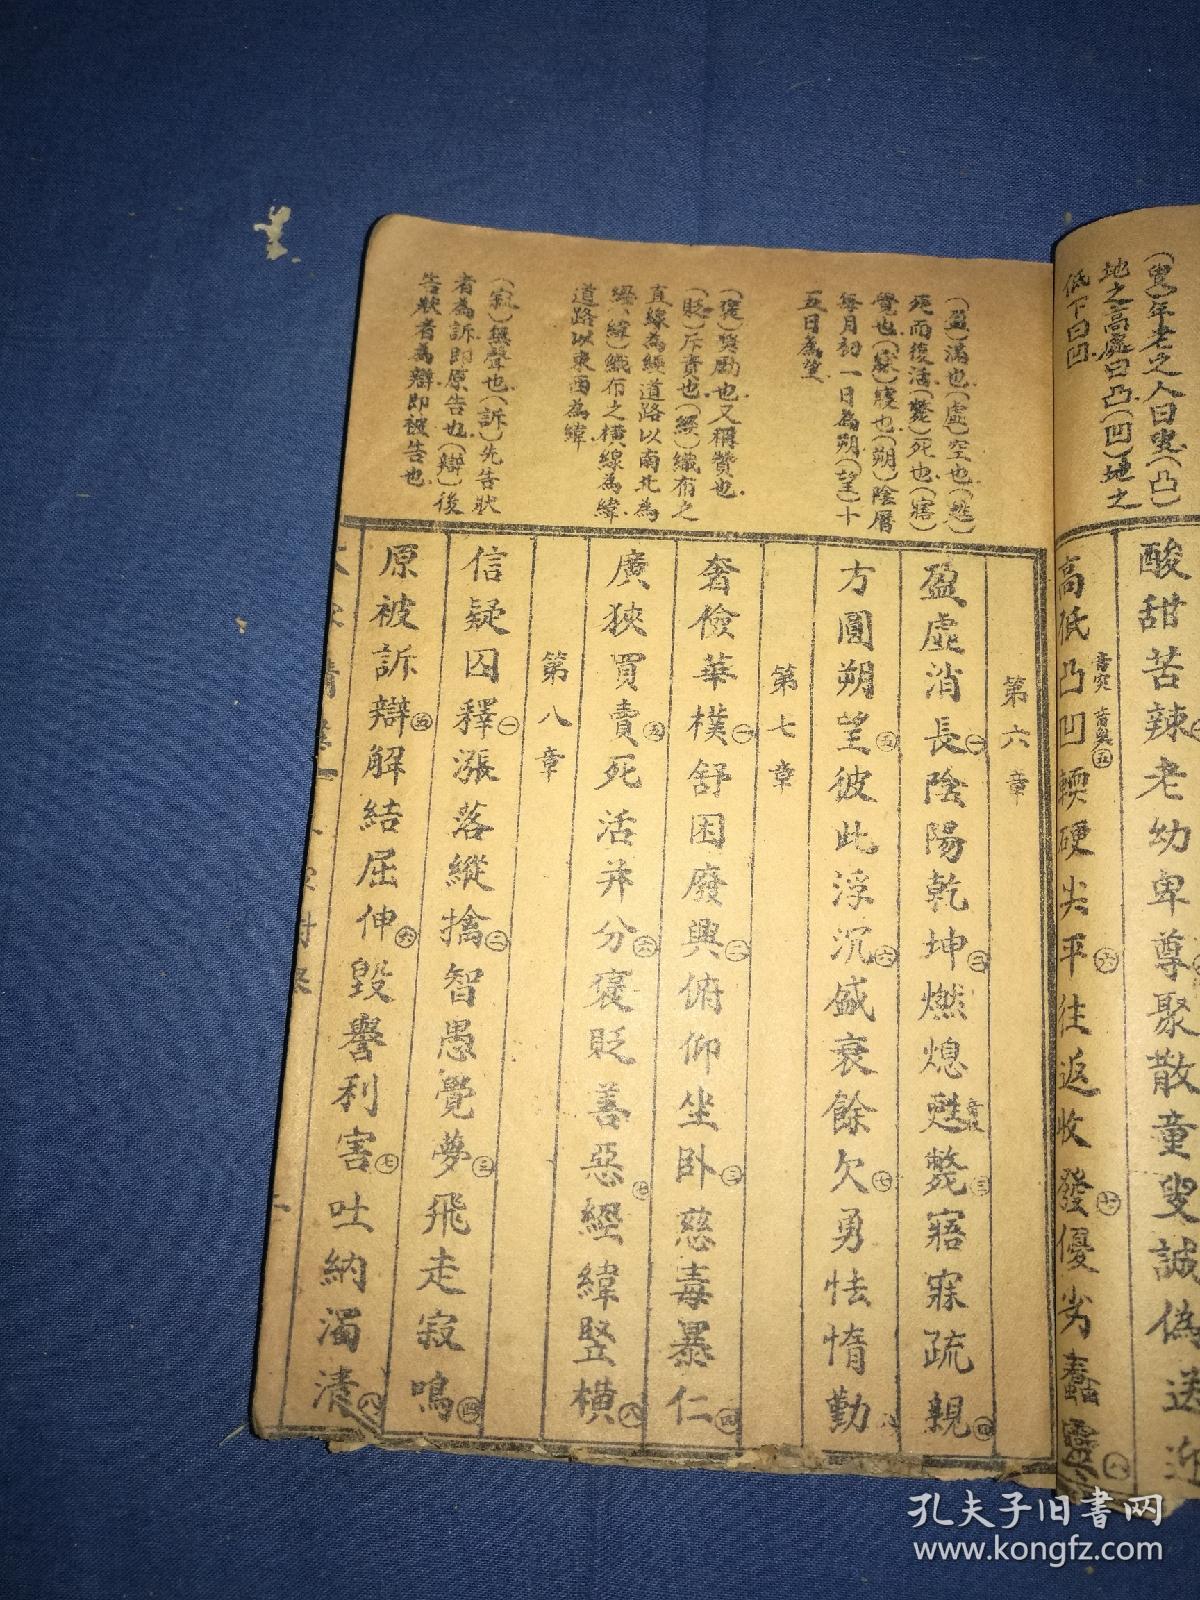 (叟)年老之人曰叟(凸)
地之高處曰凸(凹)地之
低下曰凹
酸甜苦辣老幼卑尊聚散童叟誠偽送迎
高低凸凹輭硬尖平往返收發優劣蠢靈
(盈)滿也(虛)空也(甦)
死而復活(斃)死也(寤)
覺也(寐)寢也(朔)陰曆
每月初一日為朔(望)十
五日為望
(褒)獎勵也又稱贊也
(貶)斥責也(經)織布之
直線為經道路以南北為
經(緯)織布之橫線為緯
道路以東西為緯
(寂)無聲也(訴)先告狀
者為訴即原告也(辯)後
告狀者為辯即被告也
第六章
盈虛消長㊀陰陽乾坤㊁燃熄甦斃㊂寤寐疏親㊃
方圓朔望㊄彼此浮沉㊅盛衰餘欠㊆勇怯惰勤
第七章
奢儉華樸㊀舒困廢興㊁俯仰坐臥㊂慈毒暴仁㊃
廣狹買賣㊄死活并分㊅褒貶善惡㊆經緯豎橫㊇
第八章
信疑囚釋㊀漲落縱擒㊁智愚覺夢㊂飛走寂鳴㊃
原被訴辯㊄解結屈伸㊅毀譽利害㊆吐納濁清㊇
孔夫子旧书网
www.kongfz.com